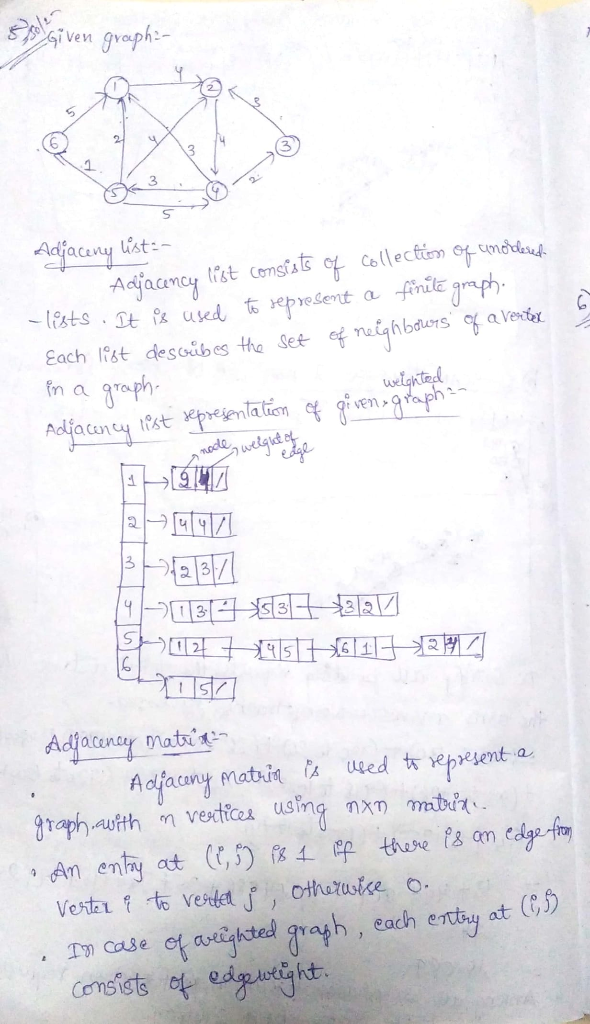 5) sol:-
Given graph:-
4
1 2
5 3
6 2 4 3 4 3
1 3 2
5 4
5
Adjaceny list:-
Adjacency list consists of collection of unordered
-lists. It is used to represent a finite graph.
Each list describes the set of neighbours of a vertex
in a graph.
weighted
Adjacency list representation of given graph:-
node weight of
edge
1 → 2 4 /
2 → 4 4 /
3 → 2 3 /
4 → 1 3 → 5 3 → 3 2 /
5 → 1 2 → 4 5 → 6 1 → 2 4 /
6 → 1 5 /
Adjacency matrix:-
Adjaceny matrix is used to represent a
graph with n vertices using nxn matrix.
• An entry at (i,j) is 1 if there is an edge from
vertex i to vertex j, otherwise 0.
• In case of weighted graph, each entry at (i,j)
consists of edgeweight.
6)